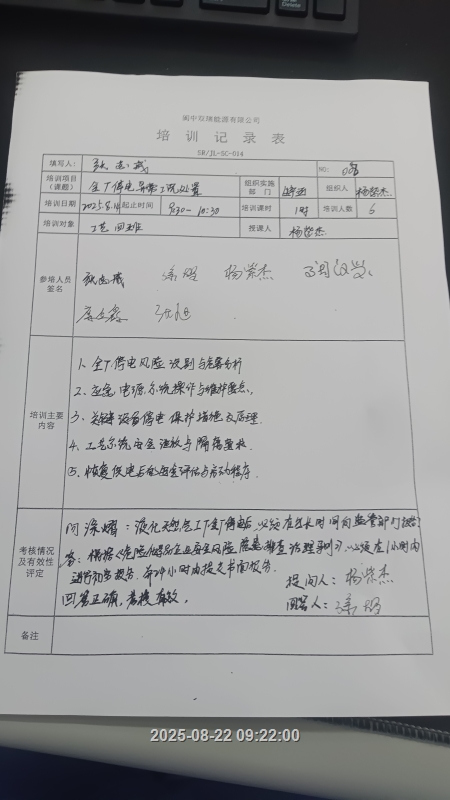 阆中双瑞能源有限公司
培 训 记 录 表
SR/JL-SC-014
填写人: NO:
培训项目（课题） 全厂停电异常工况处置 组织实施部 门 组织人 杨崇杰
培训日期 2025.8. 起止时间 9:30- 10:30 培训课时 1时 培训人数 6
培训对象 工艺四班 授课人 杨崇杰
参培人员签名 杨崇杰
培训主要内容
1、全厂停电风险识别与危害分析
2、应急电源系统操作与维护要点。
3、关键设备停电保护措施及原理
4、工艺系统安全泄放与隔离要求
5、恢复供电后的安全评估与启动程序
考核情况及有效性评定
问 : 液化天然气工厂全厂停电后,必须在多长时间内向监管部门报告?
答: 根据《危险化学品企业安全风险隐患排查治理导则》,必须在1小时内
进行初步报告,并24小时内提交书面报告.
回答正确,考核有效。
提问人: 杨崇杰
回答人:
备注
2025-08-22 09:22:00